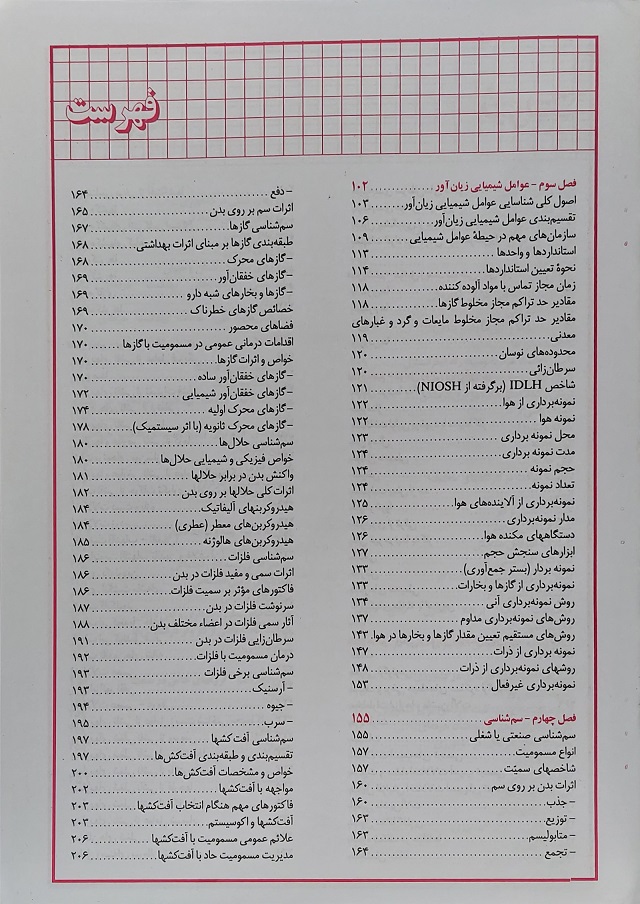 فهرست
فصل سوم - عوامل شیمیایی زیان آور ............ ۱۰۲
اصول کلی شناسایی عوامل شیمیایی زیان‌آور ............ ۱۰۳
تقسیم‌بندی عوامل شیمیایی زیان‌آور ............ ۱۰۶
سازمان‌های مهم در حیطهٔ عوامل شیمیایی ............ ۱۰۹
استانداردها و واحدها ............ ۱۱۳
نحوهٔ تعیین استانداردها ............ ۱۱۴
زمان مجاز تماس با مواد آلوده کننده ............ ۱۱۸
مقادیر حد تراکم مجاز مخلوط گازها ............ ۱۱۸
مقادیر حد تراکم مجاز مخلوط مایعات و گرد و غبارهای
معدنی ............ ۱۱۹
محدوده‌های نوسان ............ ۱۲۰
سرطان‌زائی ............ ۱۲۰
شاخص IDLH (برگرفته از NIOSH) ............ ۱۲۱
نمونه‌برداری از هوا ............ ۱۲۲
نمونه هوا ............ ۱۲۲
محل نمونه برداری ............ ۱۲۳
مدت نمونه برداری ............ ۱۲۴
حجم نمونه ............ ۱۲۴
تعداد نمونه ............ ۱۲۴
نمونه‌برداری از آلاینده‌های هوا ............ ۱۲۵
مدار نمونه‌برداری ............ ۱۲۶
دستگاههای مکنده هوا ............ ۱۲۶
ابزارهای سنجش حجم ............ ۱۲۷
نمونه بردار (بستر جمع‌آوری) ............ ۱۳۳
نمونه‌برداری از گازها و بخارات ............ ۱۳۳
روش نمونه‌برداری آنی ............ ۱۳۴
روش‌های نمونه‌برداری مداوم ............ ۱۳۷
روش‌های مستقیم تعیین مقدار گازها و بخارها در هوا. ۱۴۳
نمونه برداری از ذرات ............ ۱۴۷
روشهای نمونه‌برداری از ذرات ............ ۱۴۸
نمونه‌برداری غیرفعال ............ ۱۵۳
فصل چهارم - سم‌شناسی ............ ۱۵۵
سم‌شناسی صنعتی یا شغلی ............ ۱۵۵
انواع مسمومیت ............ ۱۵۷
شاخصهای سمیّت ............ ۱۵۷
اثرات بدن بر روی سم ............ ۱۶۰
- جذب ............ ۱۶۰
- توزیع ............ ۱۶۳
- متابولیسم ............ ۱۶۳
- تجمع ............ ۱۶۴
- دفع ............ ۱۶۴
اثرات سم بر روی بدن ............ ۱۶۵
سم‌شناسی گازها ............ ۱۶۷
طبقه‌بندی گازها بر مبنای اثرات بهداشتی ............ ۱۶۸
- گازهای محرک ............ ۱۶۸
- گازهای خفقان‌آور ............ ۱۶۹
- گازها و بخارهای شبه دارو ............ ۱۶۹
خصائص گازهای خطرناک ............ ۱۶۹
فضاهای محصور ............ ۱۷۰
اقدامات درمانی عمومی در مسمومیت با گازها ............ ۱۷۰
خواص و اثرات گازها ............ ۱۷۰
- گازهای خفقان‌آور ساده ............ ۱۷۰
- گازهای خفقان‌آور شیمیایی ............ ۱۷۲
- گازهای محرک اولیه ............ ۱۷۴
- گازهای محرک ثانویه (با اثر سیستمیک) ............ ۱۷۸
سم‌شناسی حلال‌ها ............ ۱۸۰
خواص فیزیکی و شیمیایی حلال‌ها ............ ۱۸۰
واکنش بدن در برابر حلالها ............ ۱۸۱
اثرات کلی حلالها بر روی بدن ............ ۱۸۲
هیدروکربنهای آلیفاتیک ............ ۱۸۴
هیدروکربن‌های معطر (عطری) ............ ۱۸۴
هیدروکربن‌های هالوژنه ............ ۱۸۵
سم‌شناسی فلزات ............ ۱۸۶
اثرات سمی و مفید فلزات در بدن ............ ۱۸۶
فاکتورهای مؤثر بر سمیت فلزات ............ ۱۸۶
سرنوشت فلزات در بدن ............ ۱۸۷
آثار سمی فلزات در اعضاء مختلف بدن ............ ۱۸۸
سرطان‌زایی فلزات در بدن ............ ۱۹۱
درمان مسمومیت با فلزات ............ ۱۹۲
سم‌شناسی برخی فلزات ............ ۱۹۳
- آرسنیک ............ ۱۹۳
- جیوه ............ ۱۹۴
- سرب ............ ۱۹۵
سم‌شناسی آفت کشها ............ ۱۹۷
تقسیم‌بندی و طبقه‌بندی آفت‌کش‌ها ............ ۱۹۷
خواص و مشخصات آفت‌کش‌ها ............ ۲۰۰
مواجهه با آفت‌کشها ............ ۲۰۲
فاکتورهای مهم هنگام انتخاب آفت‌کشها ............ ۲۰۳
آفت‌کشها و اکوسیستم ............ ۲۰۳
علائم عمومی مسمومیت با آفت‌کشها ............ ۲۰۶
مدیریت مسمومیت حاد با آفت‌کشها ............ ۲۰۶